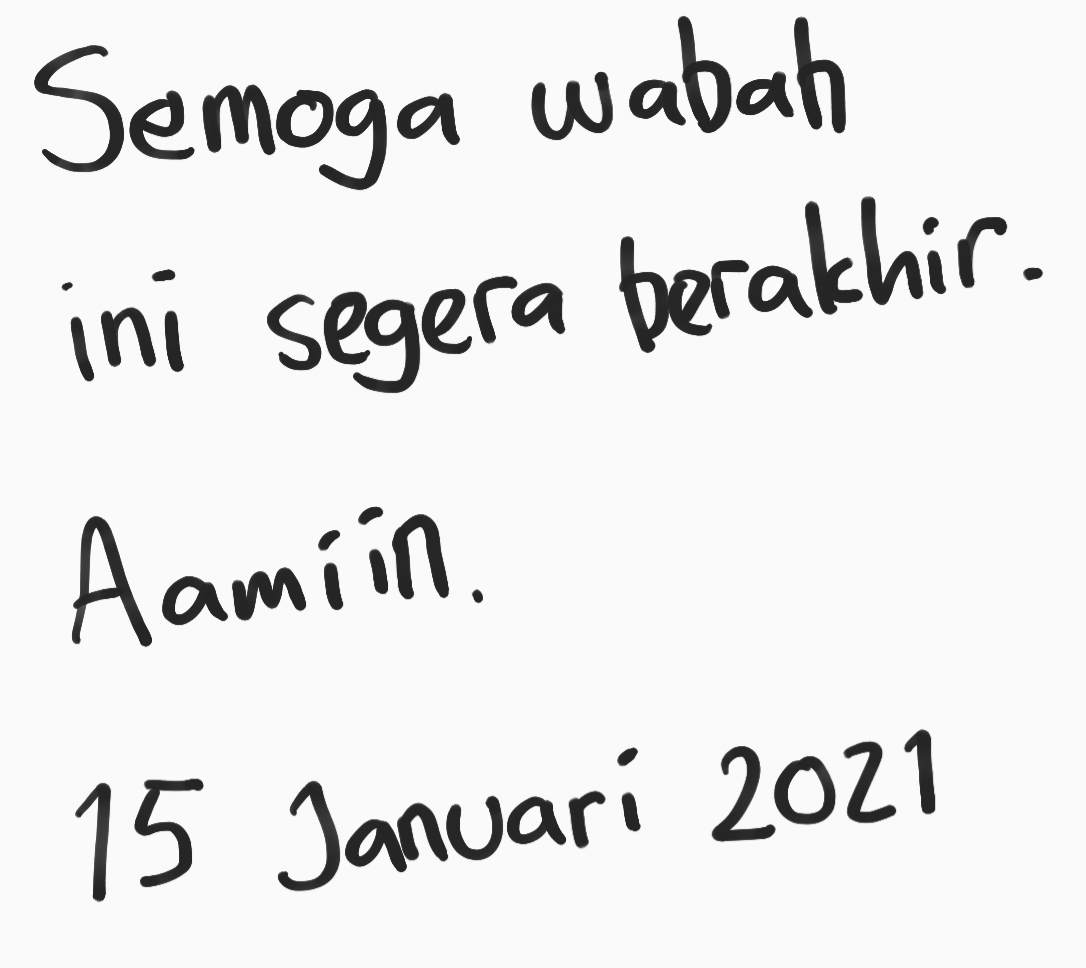 Semoga wabah
ini segera berakhir.
Aamiin.
15 Januari 2021